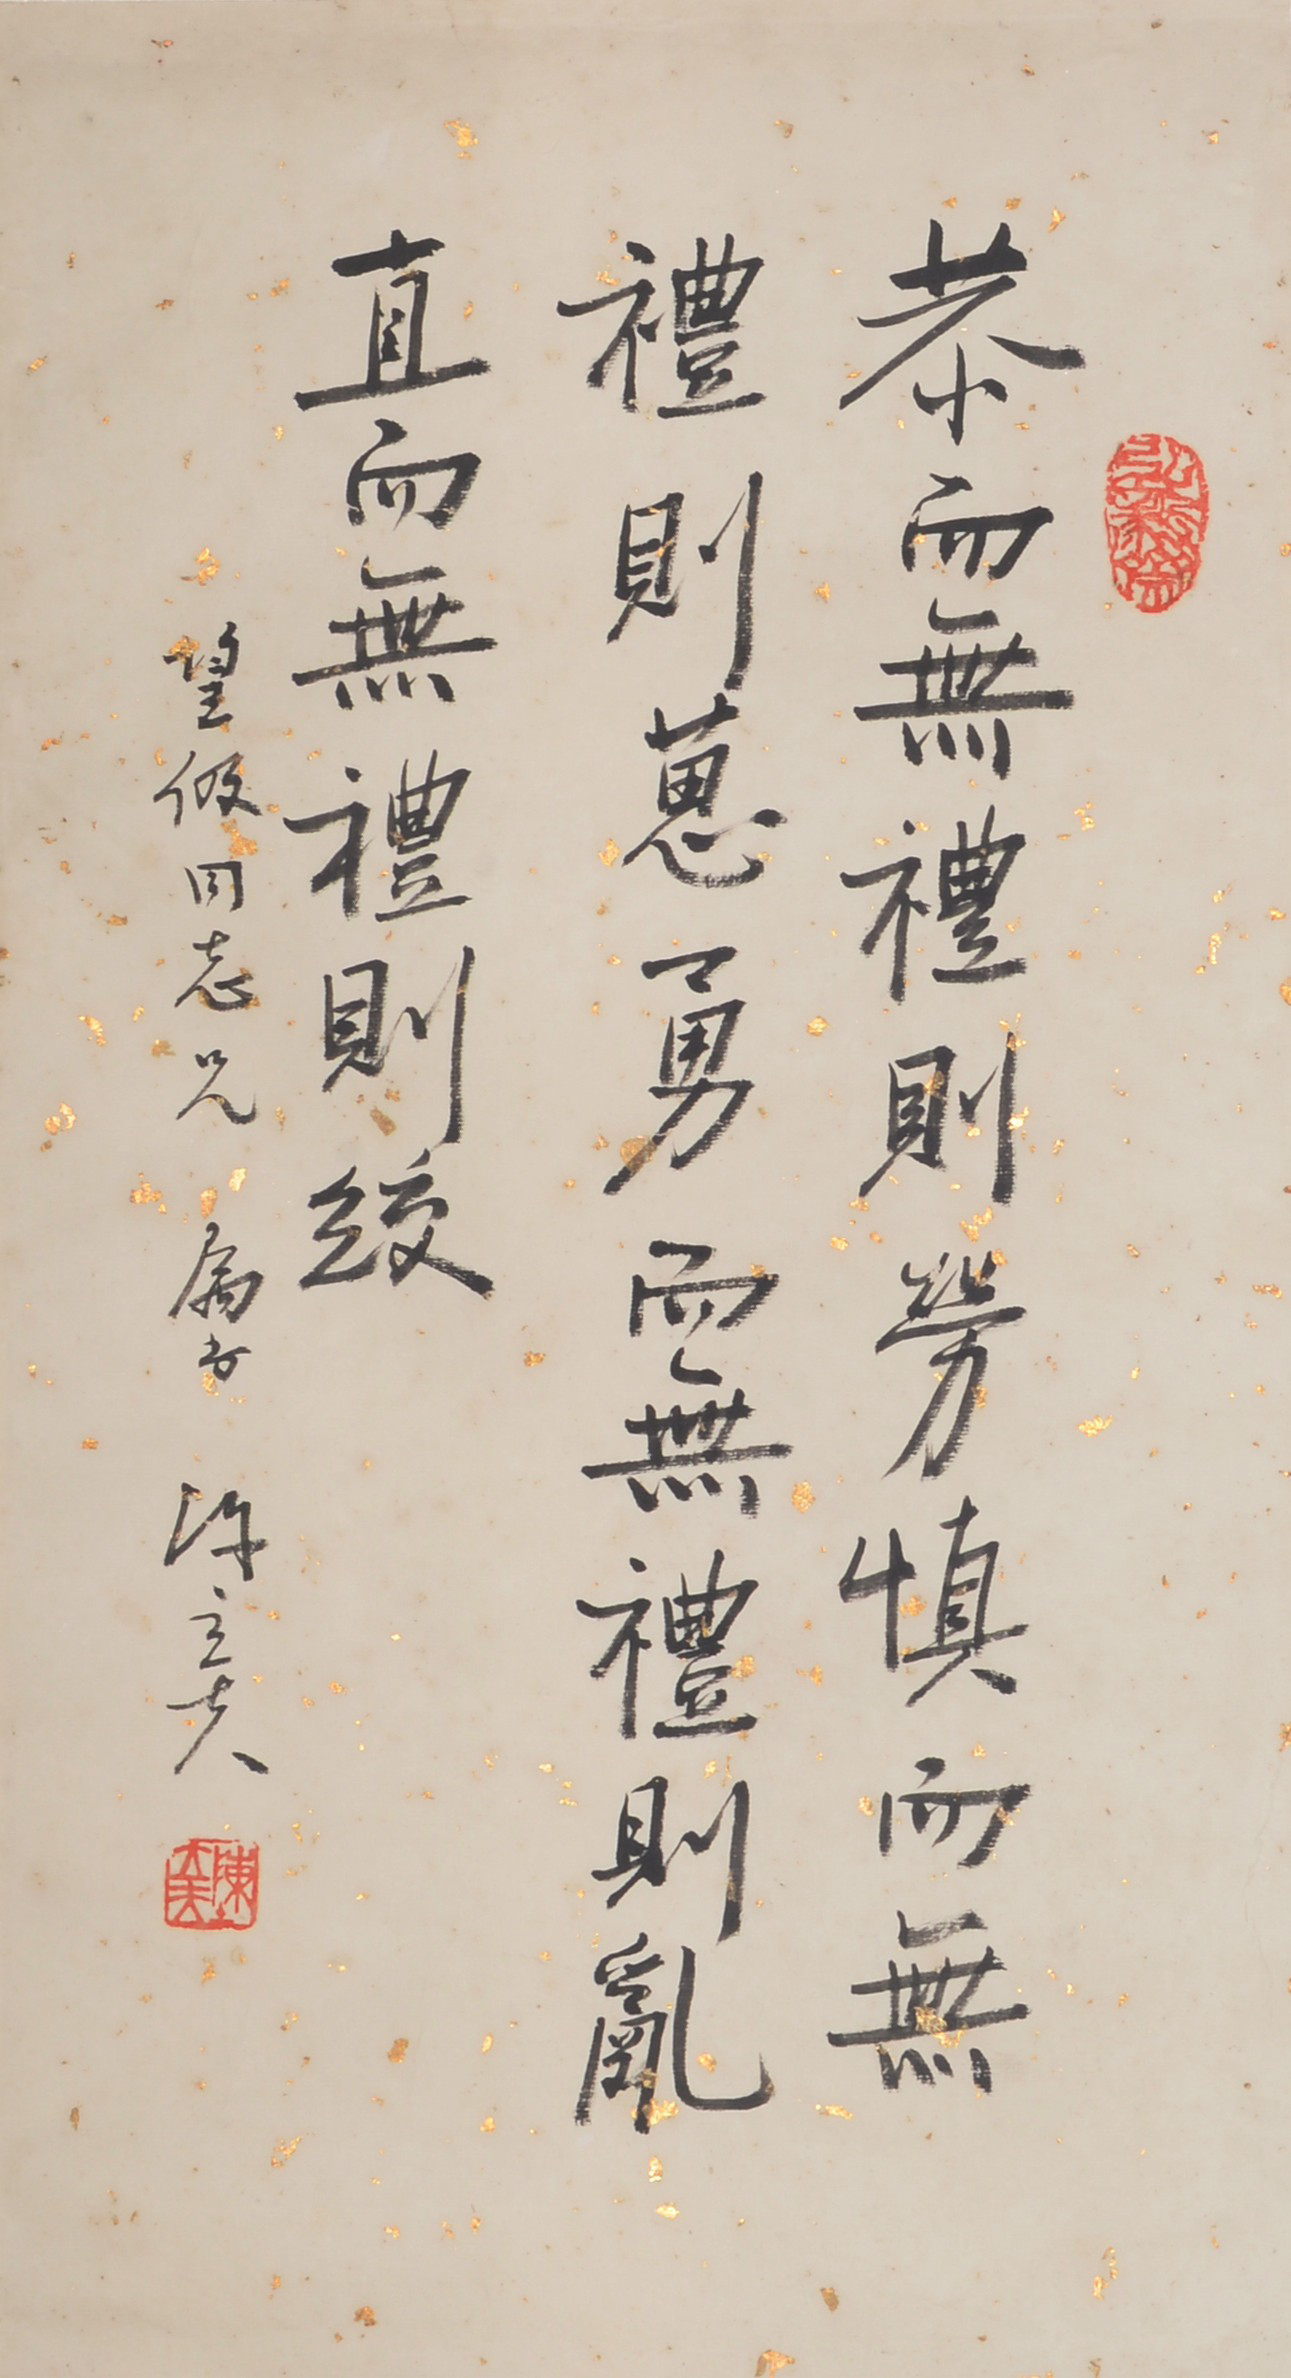 恭而無禮則勞慎而無
禮則葸勇而無禮則亂
直而無禮則絞
望伋同志兄 屬書 陳立夫
陳立夫